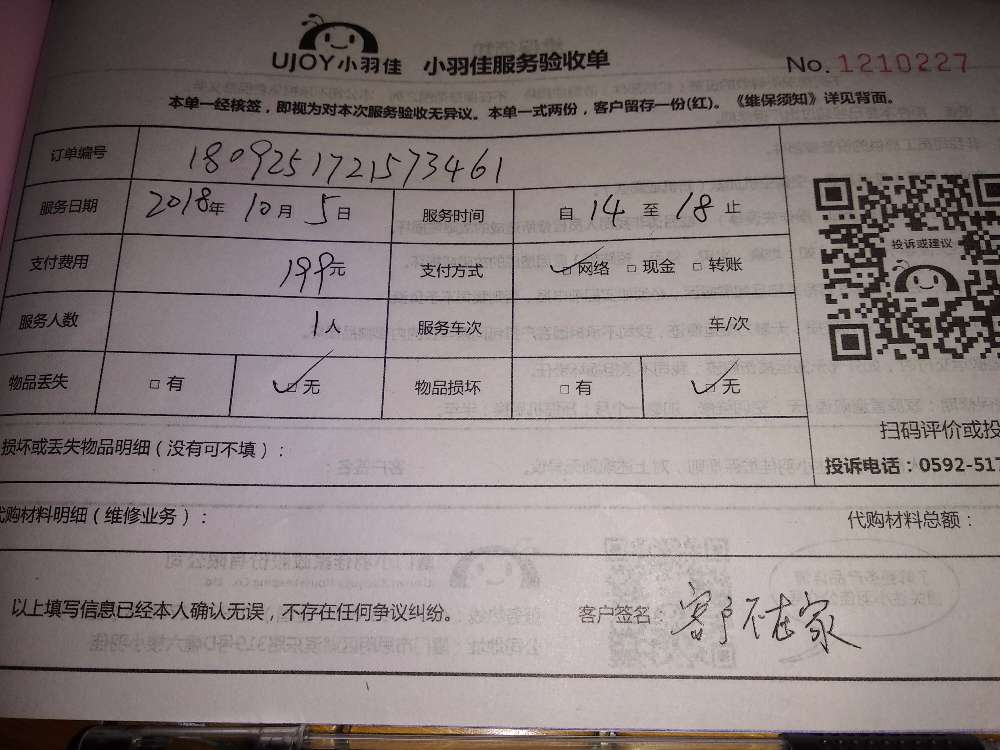 UJOY小羽佳 小羽佳服务验收单 No. 1210227
本单一经核签，即视为对本次服务验收无异议。本单一式两份，客户留存一份(红)。《维保须知》详见背面。
订单编号 180925172157346​1
服务日期 2018年 10月 5日 服务时间 自 14 至 18 止
投诉或建议
支付费用 199元 支付方式 ☑网络 □现金 □转账
服务人数 1人 服务车次 车/次
物品丢失 □有 ☑无 物品损坏 □有 ☑无
损坏或丢失物品明细（没有可不填）：
扫码评价或投
投诉电话：0592-517
代购材料明细（维修业务）： 代购材料总额：
以上填写信息已经本人确认无误，不存在任何争议纠纷。 客户签名：客户不在家